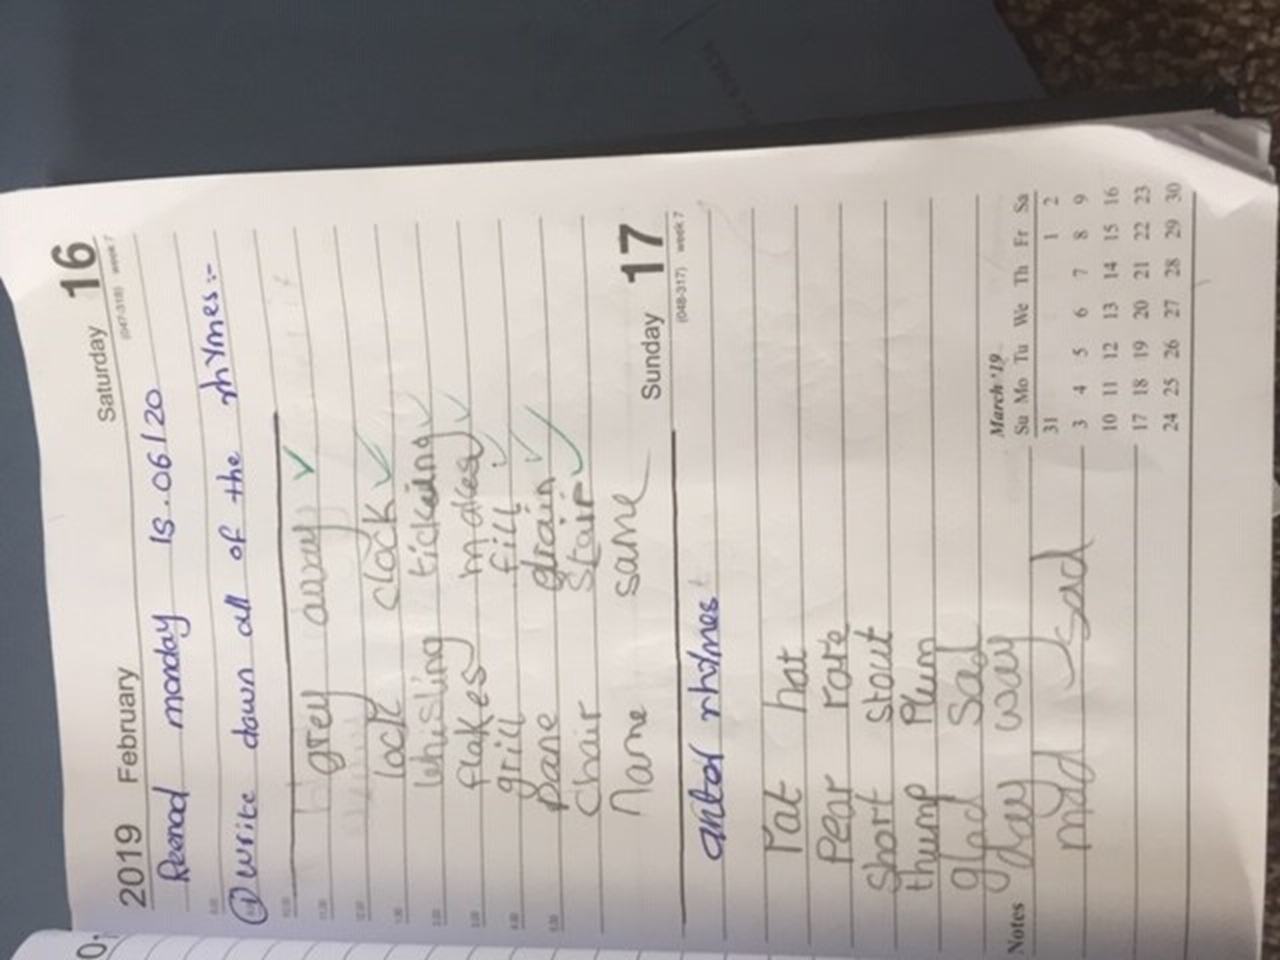 2019 February Saturday 16
(047-318) week 7
Reenad monday 15.06/20
1 write down all of the rhymes:-
grey away
lock clock
whisling ticking
flakes makes
grill fill
pane drain
Chair Stair
Name same
Sunday 17
(048-317) week 7
rhimes
rat hat
Pear rare
Short stout
thump Plum
glad Sad
day way
mad sad
Notes
March '19
Su Mo Tu We Th Fr Sa
31 1 2
3 4 5 6 7 8 9
10 11 12 13 14 15 16
17 18 19 20 21 22 23
24 25 26 27 28 29 30